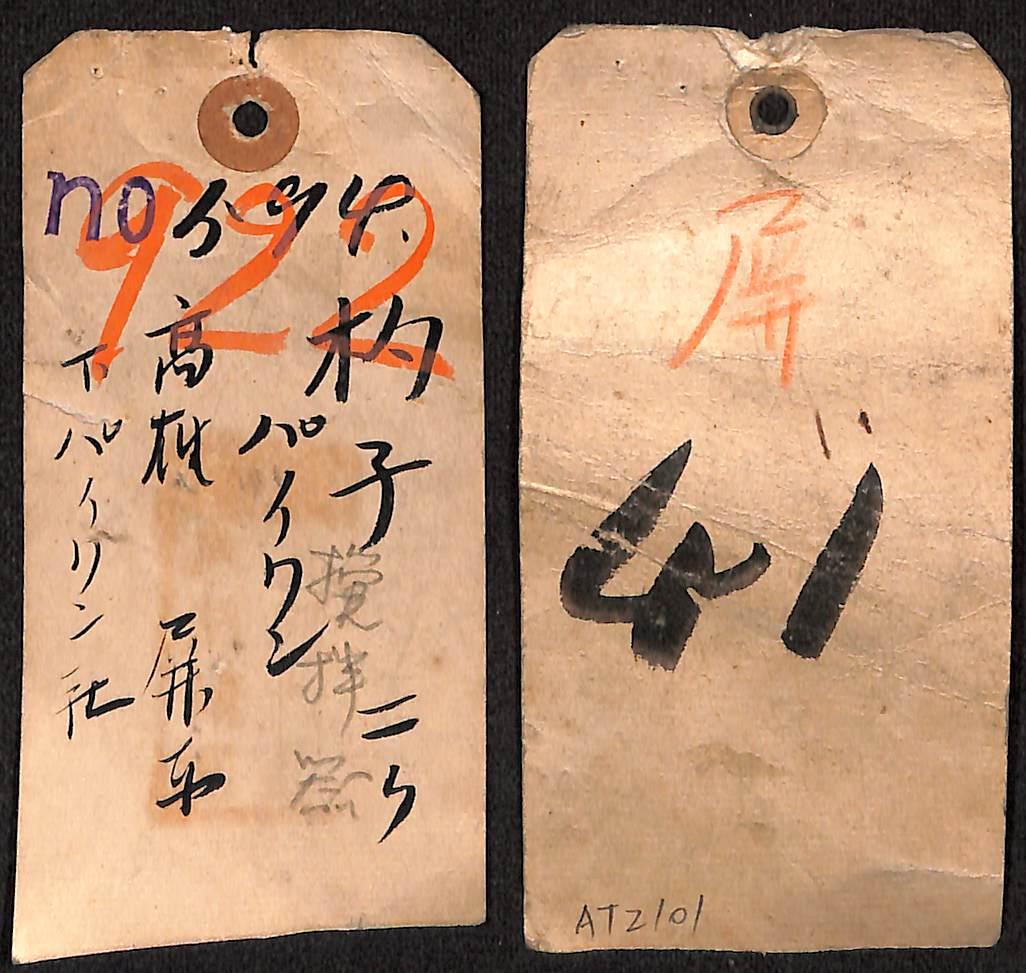 no 922
杓子 二ケ
攪拌器
パイワン
高雄 屏東
下パイリン社
屏
41
AT2101